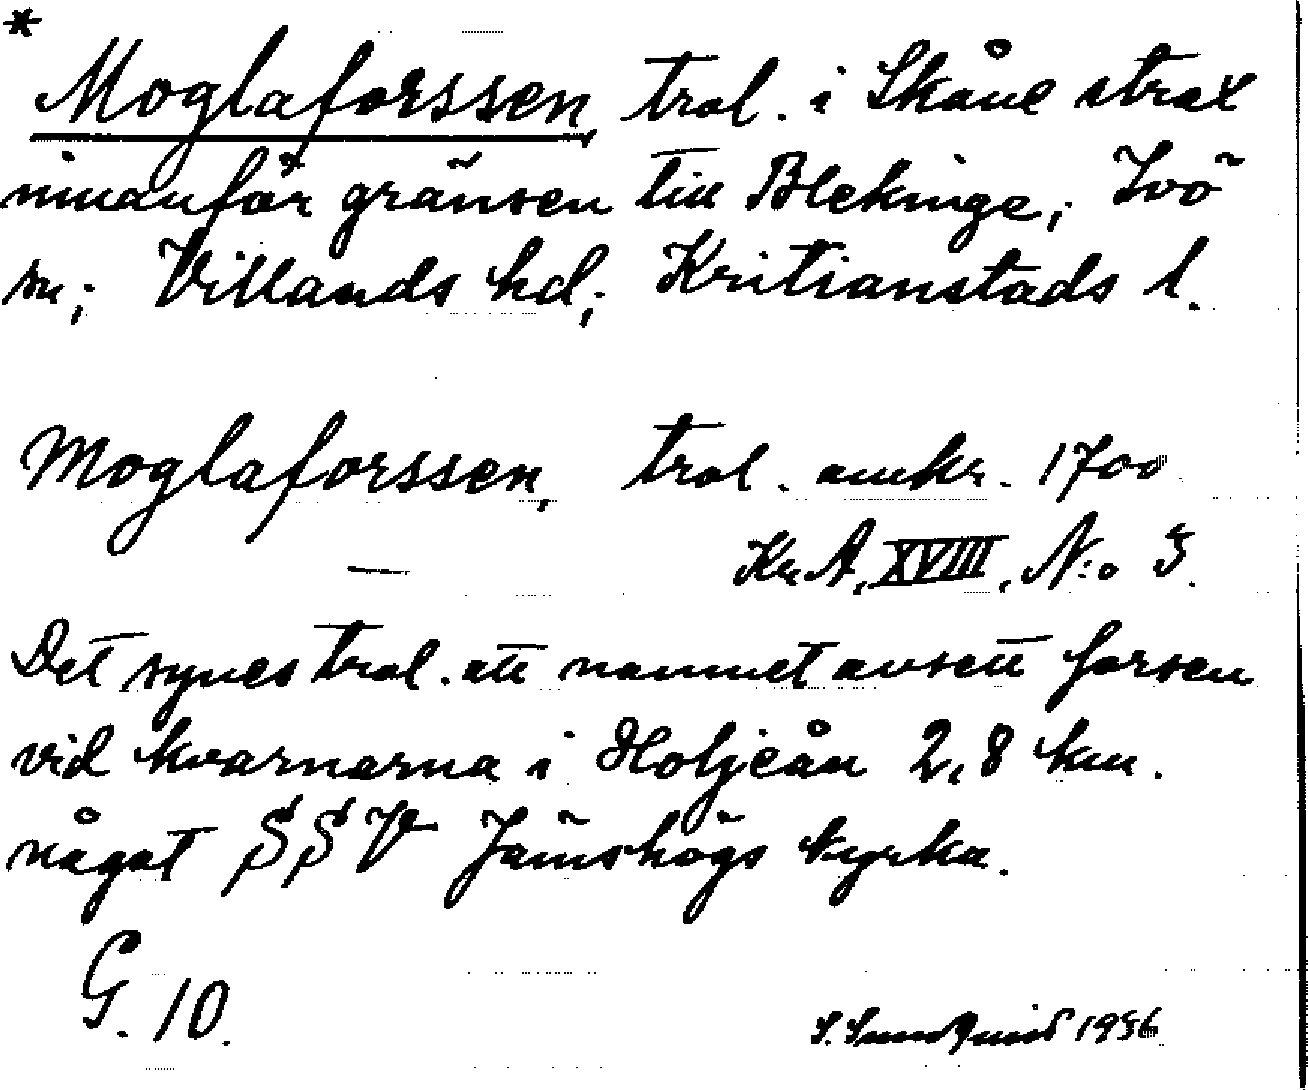 *
Moglaforssen, trol. i Skåne strax
innanför gränsen till Blekinge; Ivö
sn; Villands hd; Kritianstads l.
Moglaforssen, trol. omkr. 1700
Kr.A, XVIII, N:o 3.
—
Det synes trol. att namnet avsett forsen
vid kvarnarna i Holjeån 2,8 km.
något SSV Jämshögs kyrka.
G. 10.
S. Sundquist 1936